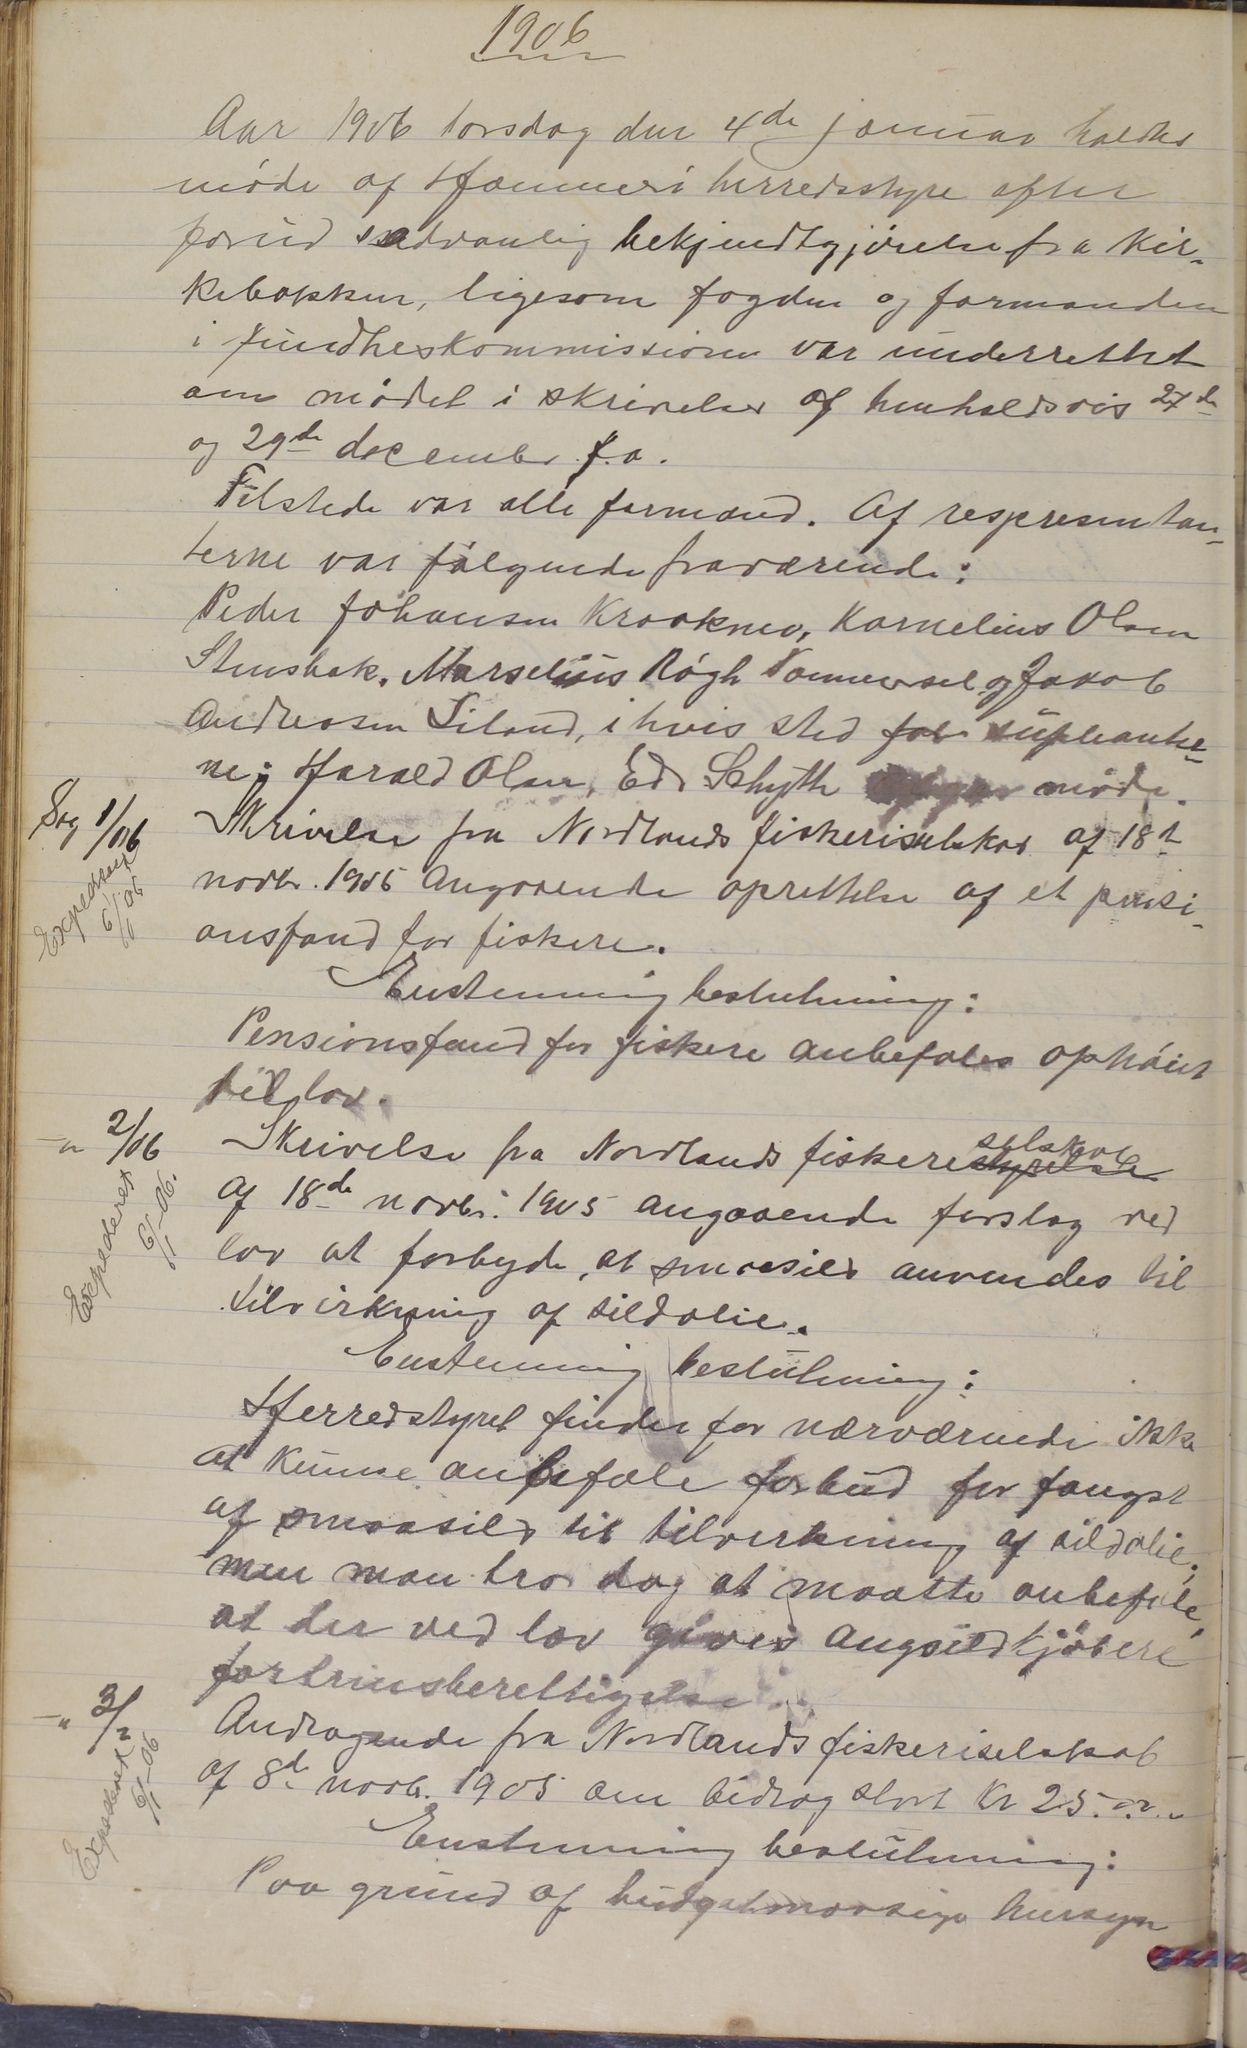 1906
Aar 1906 torsdag den 4de januar holdtes
møde af Hammerø herredsstyre efter
forud sædvanlig bekjendtgjørelse fra kir-
kebakken, ligesom fogden og formanden
i sundheskommissionen var underrettet
om mødet i skrivelser af henholdsvis 27de
og 29de december f.a.
Tilstede var alle formænd. Af respresentan-
terne var følgende fraværende:
Peder Johansen Kraakmo, Kornelius Olsen
Stensbak, Marselius Høgh Tommernes og Jakob
Andreasen Liland, i hvis sted supleante-
ne: Harald Olsen, Edv Schyth møde.
Sag 1/06
Skrivelse fra Nordlands fiskeriselskab af 18de
novbr. 1905 angaaende oprettelse af et pensi-
onsfond for fiskere.
Expederet
6/1 06
Enstemmig beslutning:
Pensionsfond for fiskere anbefales ophøiet
til lov.
-"- 2/06
Skrivelse fra Nordlands fiskere styrelse selskab
af 18de novbr. 1905 angaaende forslag ved
lov at forbyde, at smaasild anvendes til
tilvirkning af sildolie.
Expederet
6/1-06.
Enstemmig beslutning:
Herredstyret finder for nærværende ikke
at kunne anbefale forbud for fangst
af smaasild til tilvirkning af sildolie,
men man tror dog at maatte anbefale,
at der ved lov gives angsildkjøbere
fortrinsberettigelse.
-"- 3/"
Andragende fra Nordlands fiskeriselskab
af 8de novb. 1905 om bidrag stort Kr 25.00.
Expederet
6/1-06
Enstemmig beslutning:
Paa grund af budgetmæssige hensyn